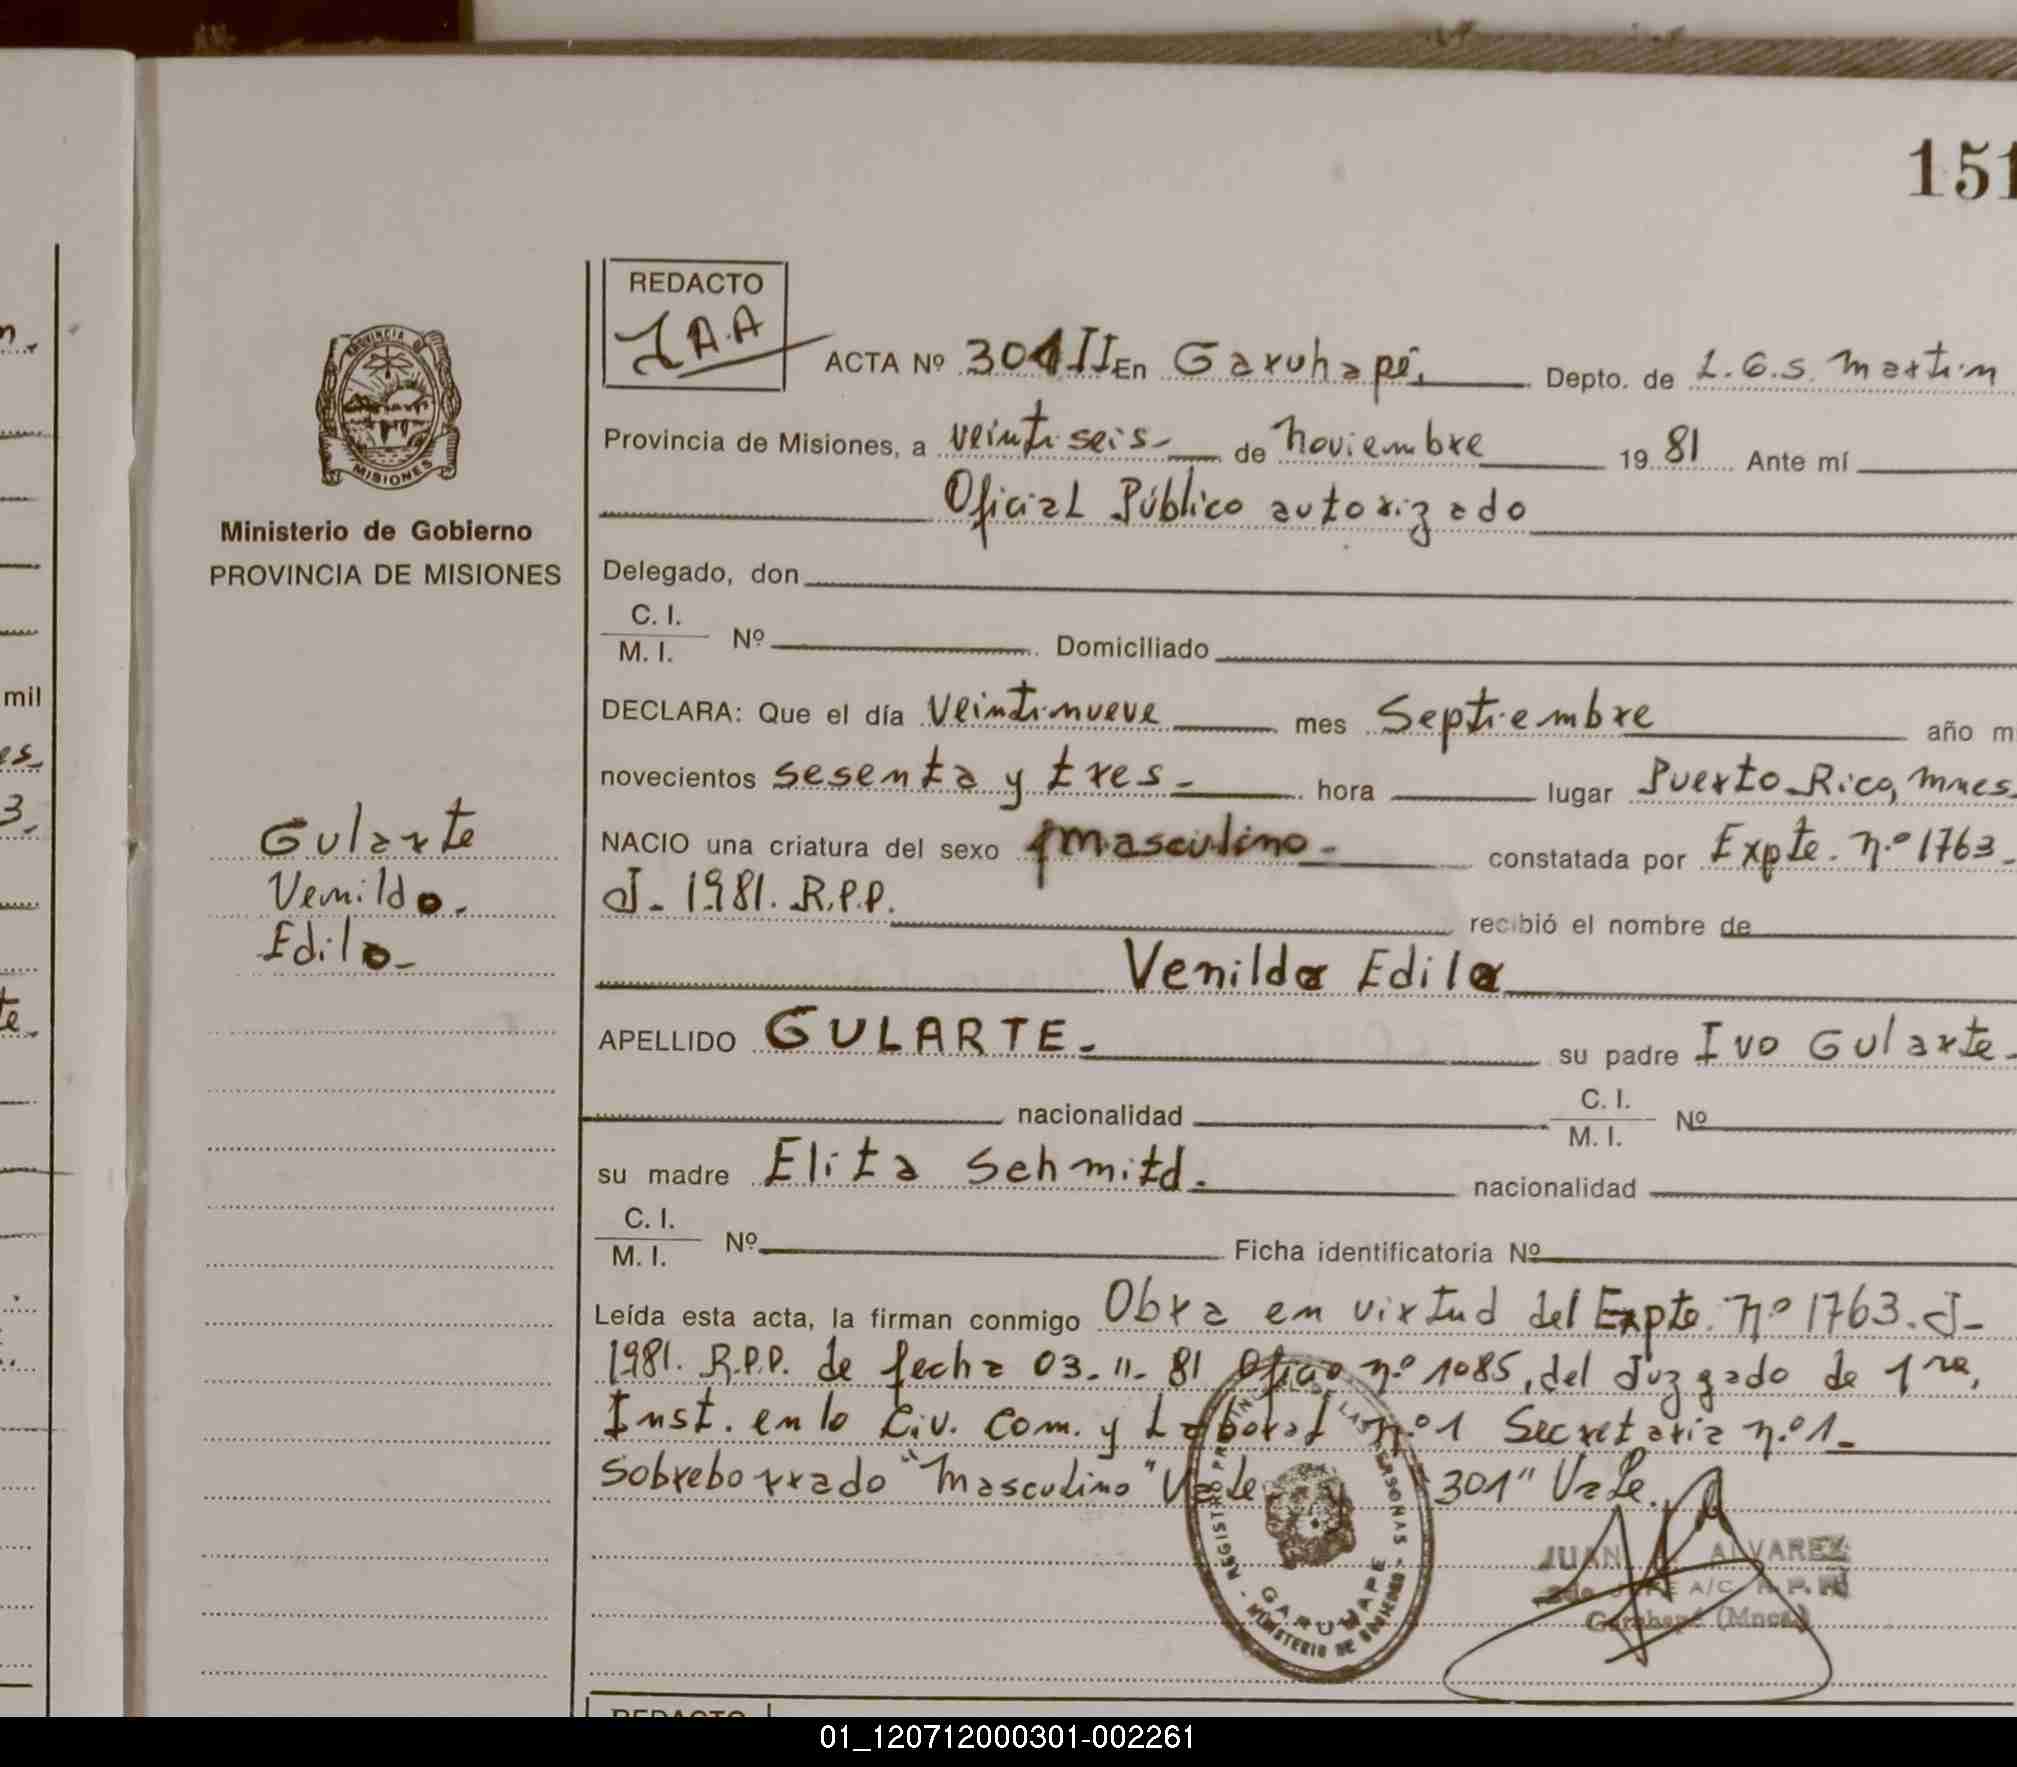 151
REDACTO
J A.A
ACTA Nº 301 II En Garuhapé, Depto. de L.G.S. Martin
PROVINCIA DE
MISIONES
Provincia de Misiones, a veintiseis- de Noviembre 19 81 Ante mí
Oficial Público autorizado
Ministerio de Gobierno
PROVINCIA DE MISIONES
Delegado, don
C. I.
M. I. Nº Domiciliado
DECLARA: Que el día Veintinueve mes Septiembre año m
novecientos sesenta y tres- hora lugar Puerto Rico, Mnes.
Gularte
Venildo.
Edilo-
NACIO una criatura del sexo masculino- constatada por Expte. nº 1763-
J- 1981. R.P.P. recibió el nombre de
Venilda Edila
APELLIDO GULARTE- su padre Ivo Gularte-
nacionalidad C. I.
M. I. Nº
su madre Elita Sehmitd. nacionalidad
C. I.
M. I. Nº Ficha identificatoria Nº
Leída esta acta, la firman conmigo Obra en virtud del Expte. nº 1763. J-
1981. R.P.P. de fecha 03-11-81 Oficio nº 1085, del Juzgado de 1ra,
Inst. en lo Civ. Com. y Laboral nº 1 Secretaria nº 1-
Sobreborrado "Masculino" Vale 301" Vale.
REGISTRO PROVINCIAL DE LAS PERSONAS
GARUHAPE
MINISTERIO DE GOBIERNO
JUAN ALVAREZ
2do JEFE A/C. R. P. P.
Garuhapé (Mnes.)
mil
es-
3-
te-
REDACTO
01_120712000301-002261